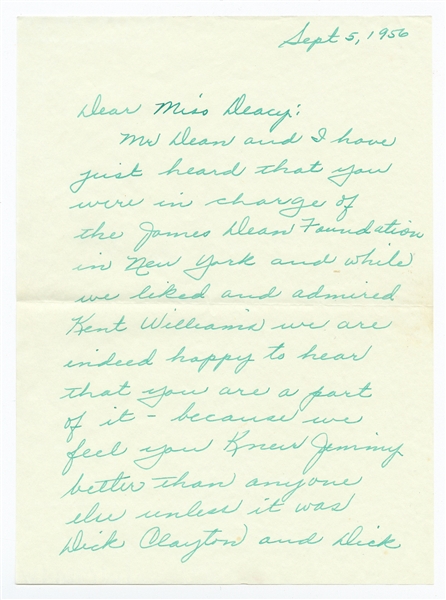 Sept 5, 1956
Dear Miss Deacy:
Mr Dean and I have
just heard that you
were in charge of
the James Dean Foundation
in New York and while
we liked and admired
Kent Williams we are
indeed happy to hear
that you are a part
of it - because we
feel you Knew Jimmy
better than anyone
else unless it was
Dick Clayton and Dick